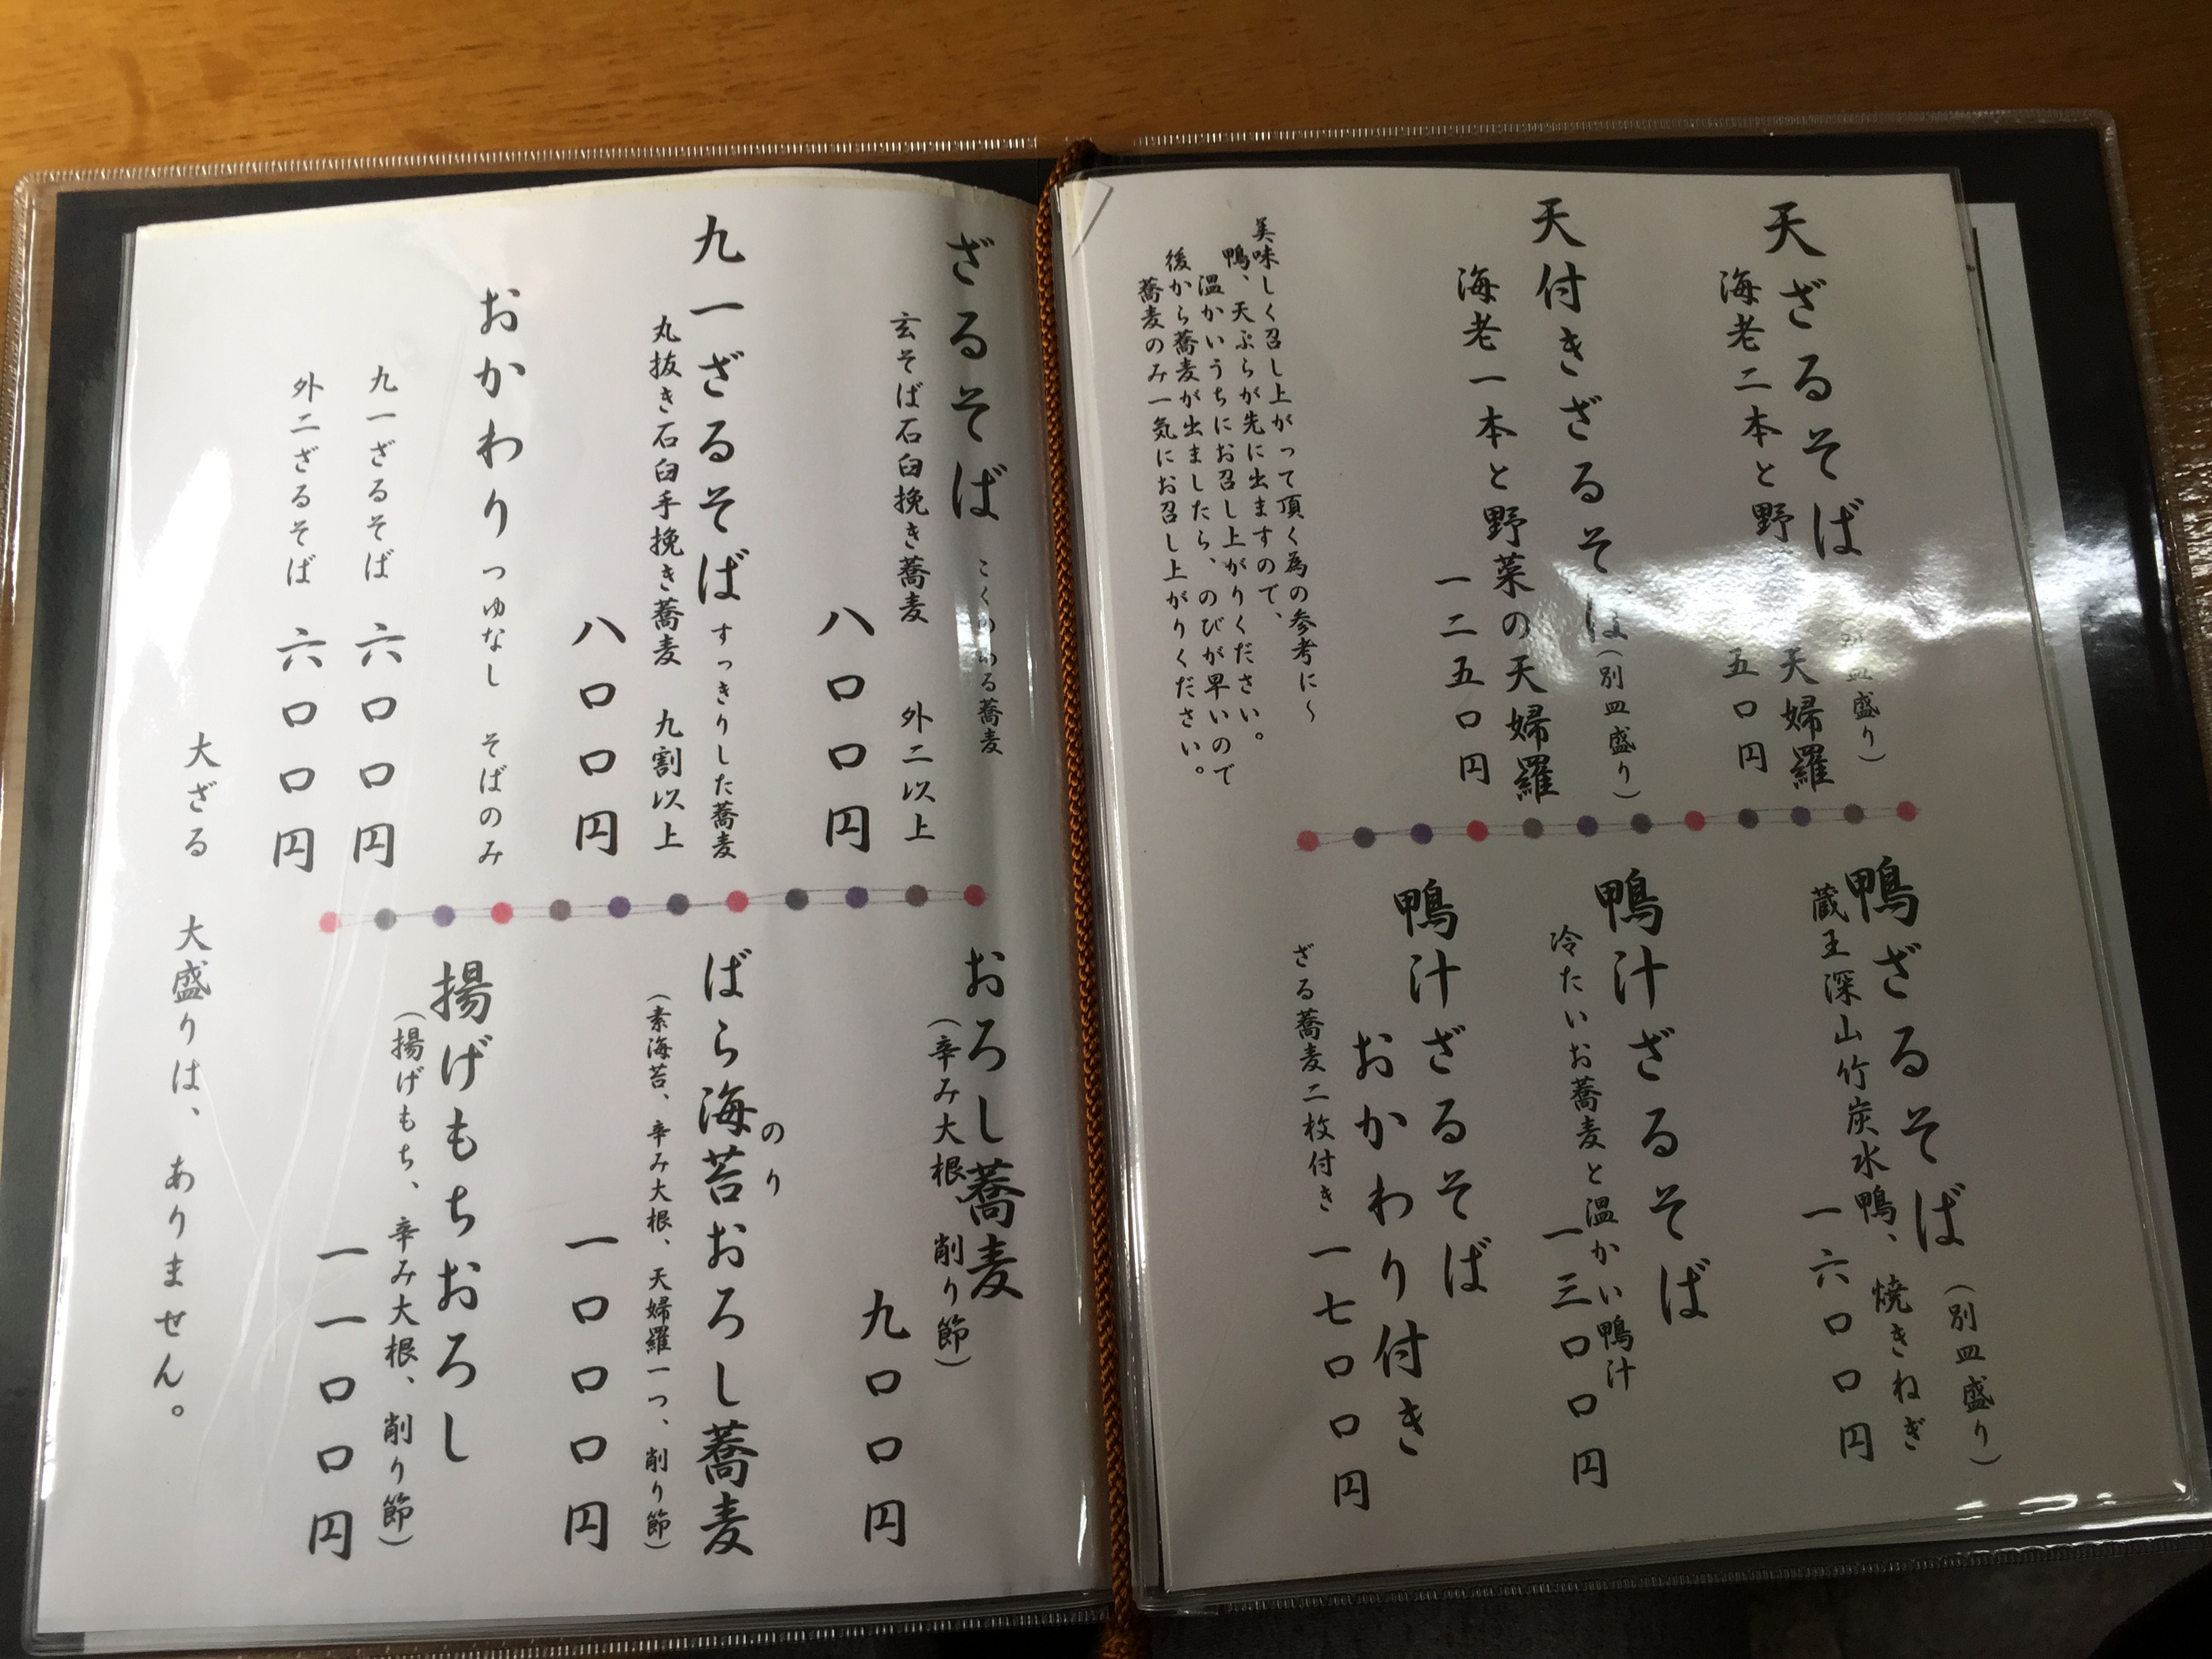 天ざるそば
盛り）
海老二本と野
天婦羅
五〇円
天付きざるそば（別皿盛り）
海老一本と野菜の天婦羅
一二五〇円
美味しく召し上がって頂く為の参考に～
鴨、天ぷらが先に出ますので、
温かいうちにお召し上がりください。
後から蕎麦が出ましたら、のびが早いので
蕎麦のみ一気にお召し上がりください。
鴨ざるそば（別皿盛り）
蔵王深山竹炭水鴨、焼きねぎ
一六〇〇円
鴨汁ざるそば
冷たいお蕎麦と温かい鴨汁
一三〇〇円
鴨汁ざるそば
おかわり付き
ざる蕎麦二枚付き 一七〇〇円
ざるそば
る蕎麦
玄そば石臼挽き蕎麦 外二以上
八〇〇円
九一ざるそば すっきりした蕎麦
丸抜き石臼手挽き蕎麦 九割以上
八〇〇円
おかわり つゆなし そばのみ
九一ざるそば 六〇〇円
外二ざるそば 六〇〇円
おろし蕎麦
（辛み大根 削り節）
九〇〇円
ばら海苔おろし蕎麦
のり
（素海苔、辛み大根、天婦羅一つ、削り節）
一〇〇〇円
揚げもちおろし
（揚げもち、辛み大根、削り節）
一一〇〇円
大ざる 大盛りは、ありません。